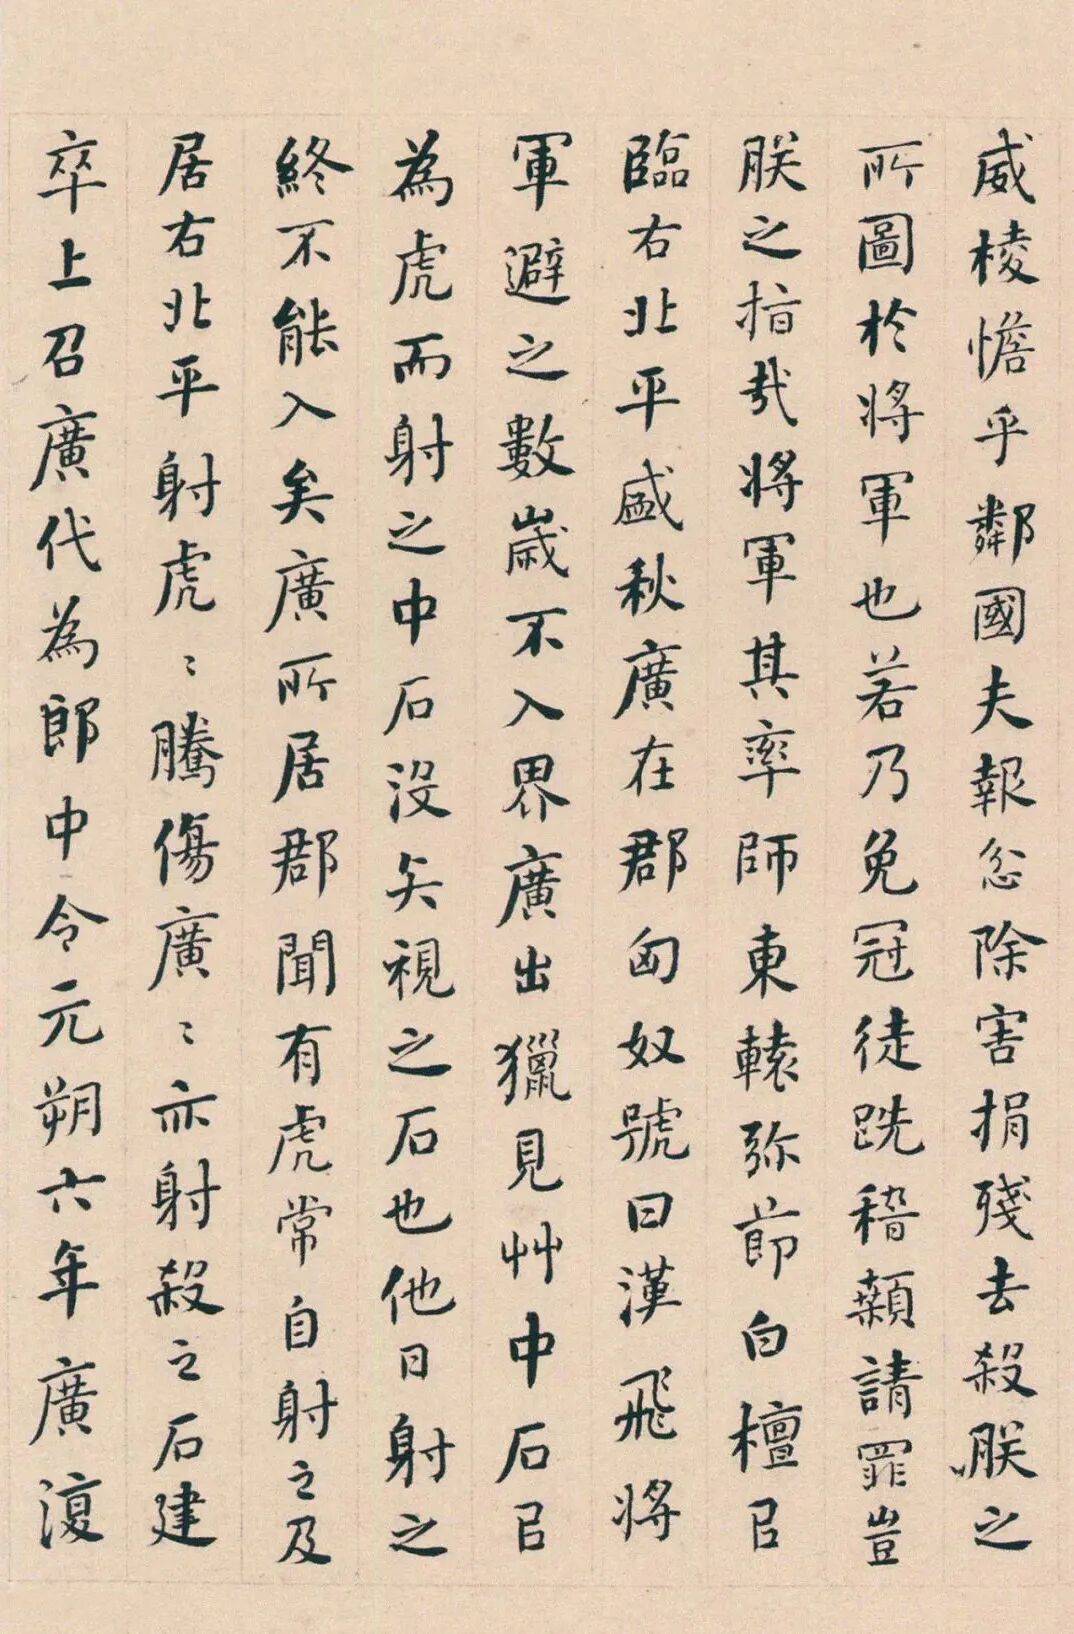 威棱憺乎鄰國夫報忿除害捐殘去殺朕之
所圖於將軍也若乃免冠徒跣稽顙請罪豈
朕之指哉將軍其率師東轅弥節白檀㠯
臨右北平盛秋廣在郡匈奴號曰漢飛將
軍避之數歲不入界廣出獵見艸中石㠯
為虎而射之中石沒矢視之石也他日射之
終不能入矣廣所居郡聞有虎常自射之及
居右北平射虎〻騰傷廣〻亦射殺之石建
卒上召廣代為郎中令元朔六年廣復